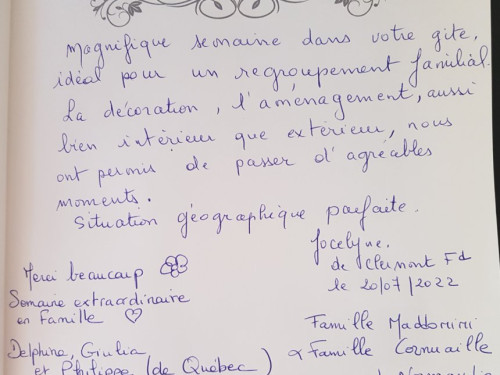 Magnifique semaine dans votre gîte,
idéal pour un regroupement familial.
La décoration, l'aménagement, aussi
bien intérieur que extérieur, nous
ont permis de passer d'agréables
moments.
Situation géographique parfaite.
Jocelyne.
de Clermont Fd
le 20/07/2022
Merci beaucoup
Semaine extraordinaire
en Famille ♡
Delphine, Giulia
et Philippe (de Québec)
Famille
& Famille Cornuaille